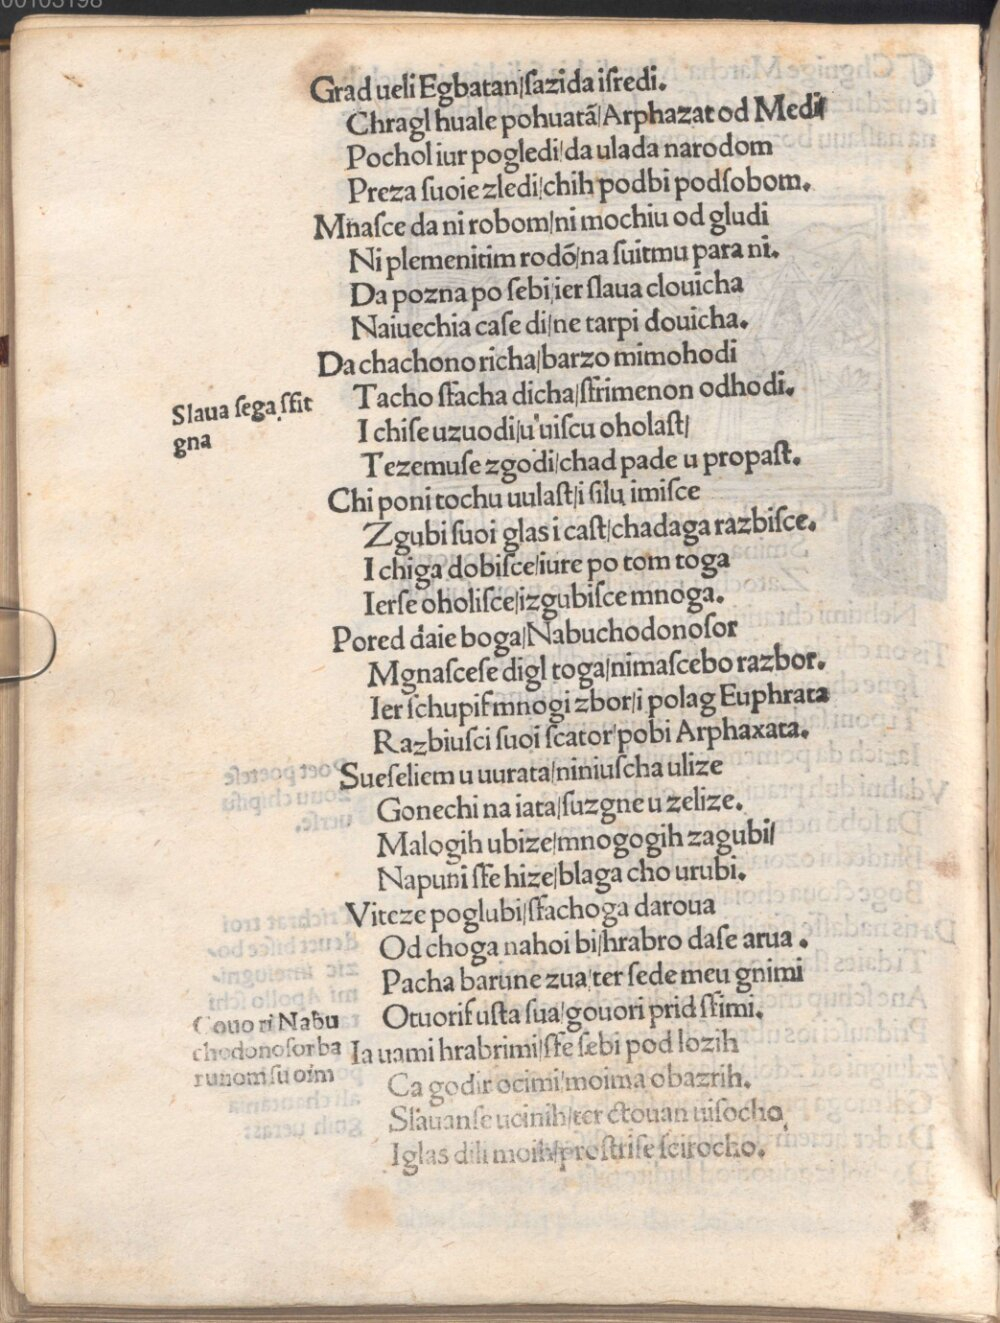 00103198
Grad ueli Egbatan/ſazida iſredi.
Chragl huale pohuatā/Arphazat od Medi/
Pochol iur pogledi/da ulada narodom
Preza ſuoie zledi/chih podbi podſobom.
Mnaſce da ni robom/ni mochiu od gludi
Ni plemenitim rodō/na ſuitmu para ni.
Da pozna po ſebi/ier ſlaua clouicha
Naiuechia caſe di/ne tarpi douicha.
Da chachono richa/barzo mimohodi
Tacho ſtacha dicha/ſtrimenon odhodi.
Slaua ſega ſfit
gna
I chiſe uzuodi/u uiſcu oholaſt/
Tezemuſe zgodi/chad pade u propaſt.
Chi poni tochu uulaſt/i ſilu imiſce
Zgubi ſuoi glas i caſt/chadaga razbiſce.
I chiga dobiſce/iure po tom toga
Ierſe oholiſce/izgubiſce mnoga.
Pored daie boga/Nabuchodonoſor
Mgnaſceſe digl toga/nimaſcebo razbor.
Ier ſchupiſ mnogi zbor/i polag Euphrata
Razbiuſci ſuoi ſcator/pobi Arphaxata.
Sueſeliem u uurata/niniuſcha ulize
Gonechi na iata/ſuzgne u zelize.
Malogih ubize/mnogogih zagubi/
Napuni ſte hize/blaga cho urubi.
Viteze poglubi/ſtachoga daroua
Od choga nahoi bi/hrabro daſe arua.
Pacha barune zua/ter ſede meu gnimi
Otuoriſ uſta ſua/gouori prid ſtimi.
Gouori Nabu
chodonoſor ba
runom ſuoim
Ia uami hrabrimi/ſte ſebi pod lozih
Ca godir ocimi/moima obazrih.
Slauanſe ucinih/ter ctouan uiſocho
I glas dili moih/proſtriſe ſcirocho.